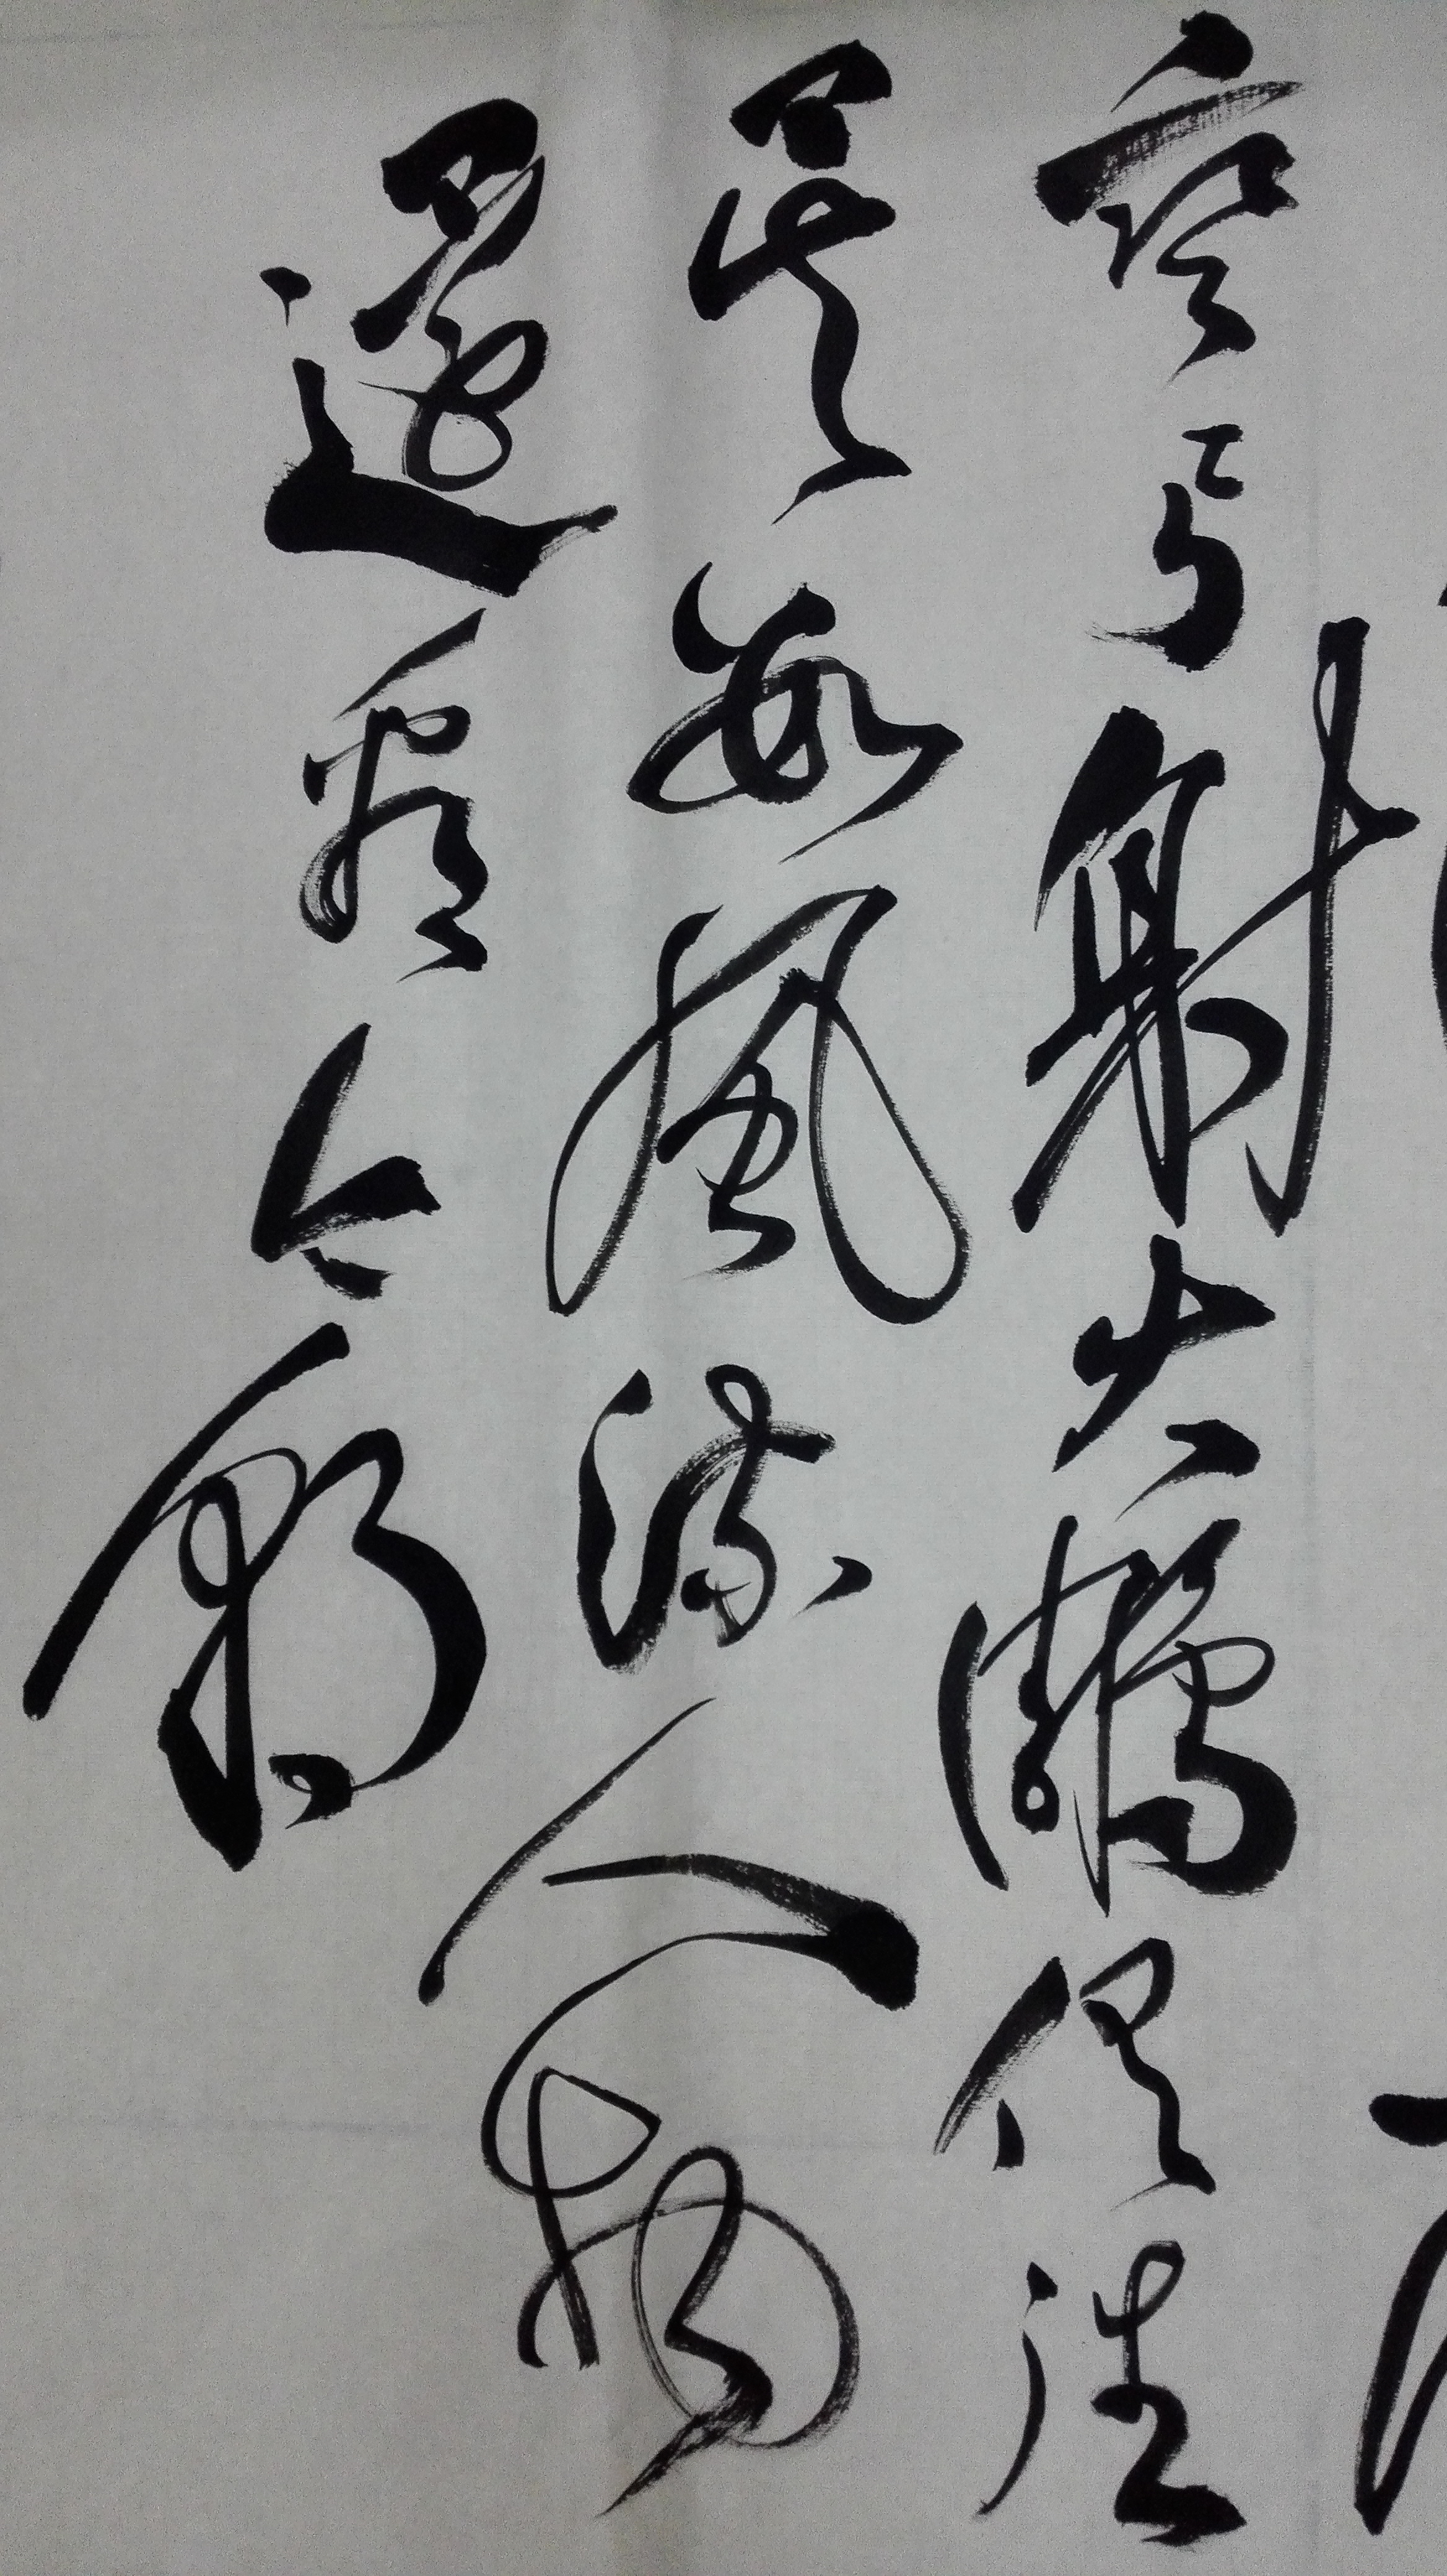 弯弓射大雕俱往
矣数風流人物
還看今朝